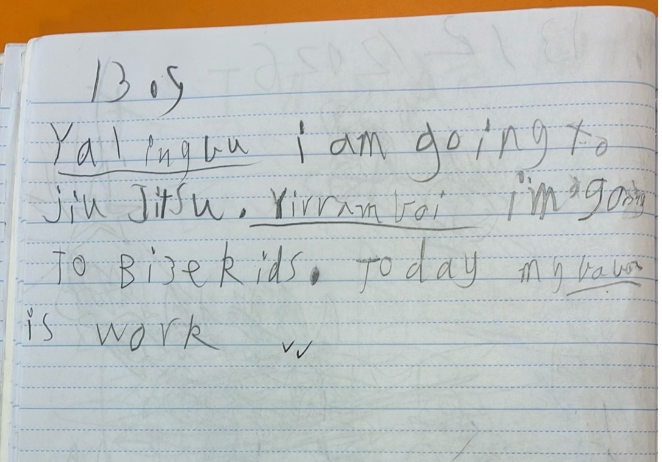 13.5
Yalingbu i am going to
jiu JitSu. Yirramboi i'm going
To Bizekids. Today my
is work